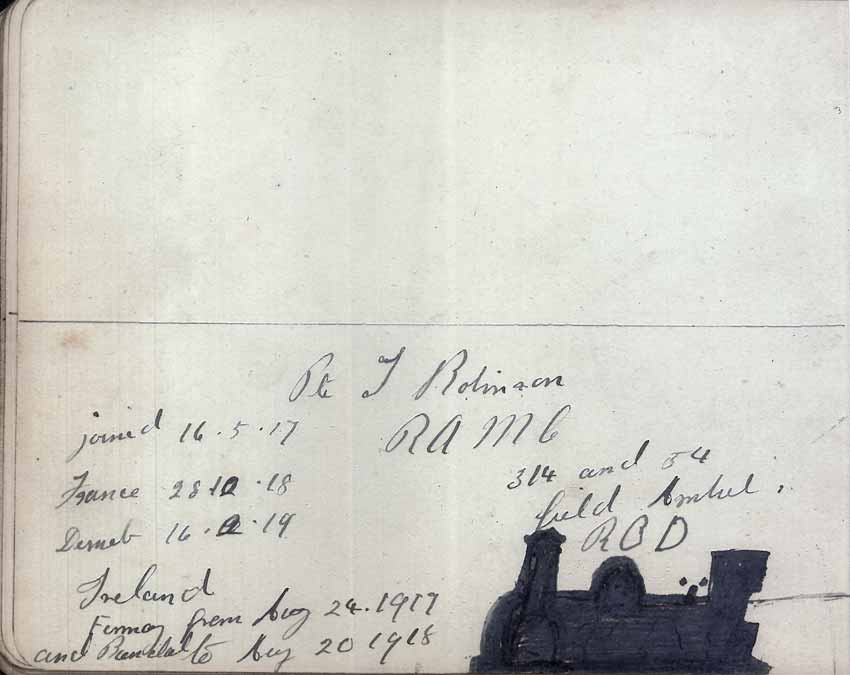 Pte T Robinson
RAMC
joined 16.5.17
314 and 54
field Ambul.
France 28.10.18
Demob 16.2.19
ROD
Ireland
Fermoy from Aug 24.1917
and to Aug 20 1918